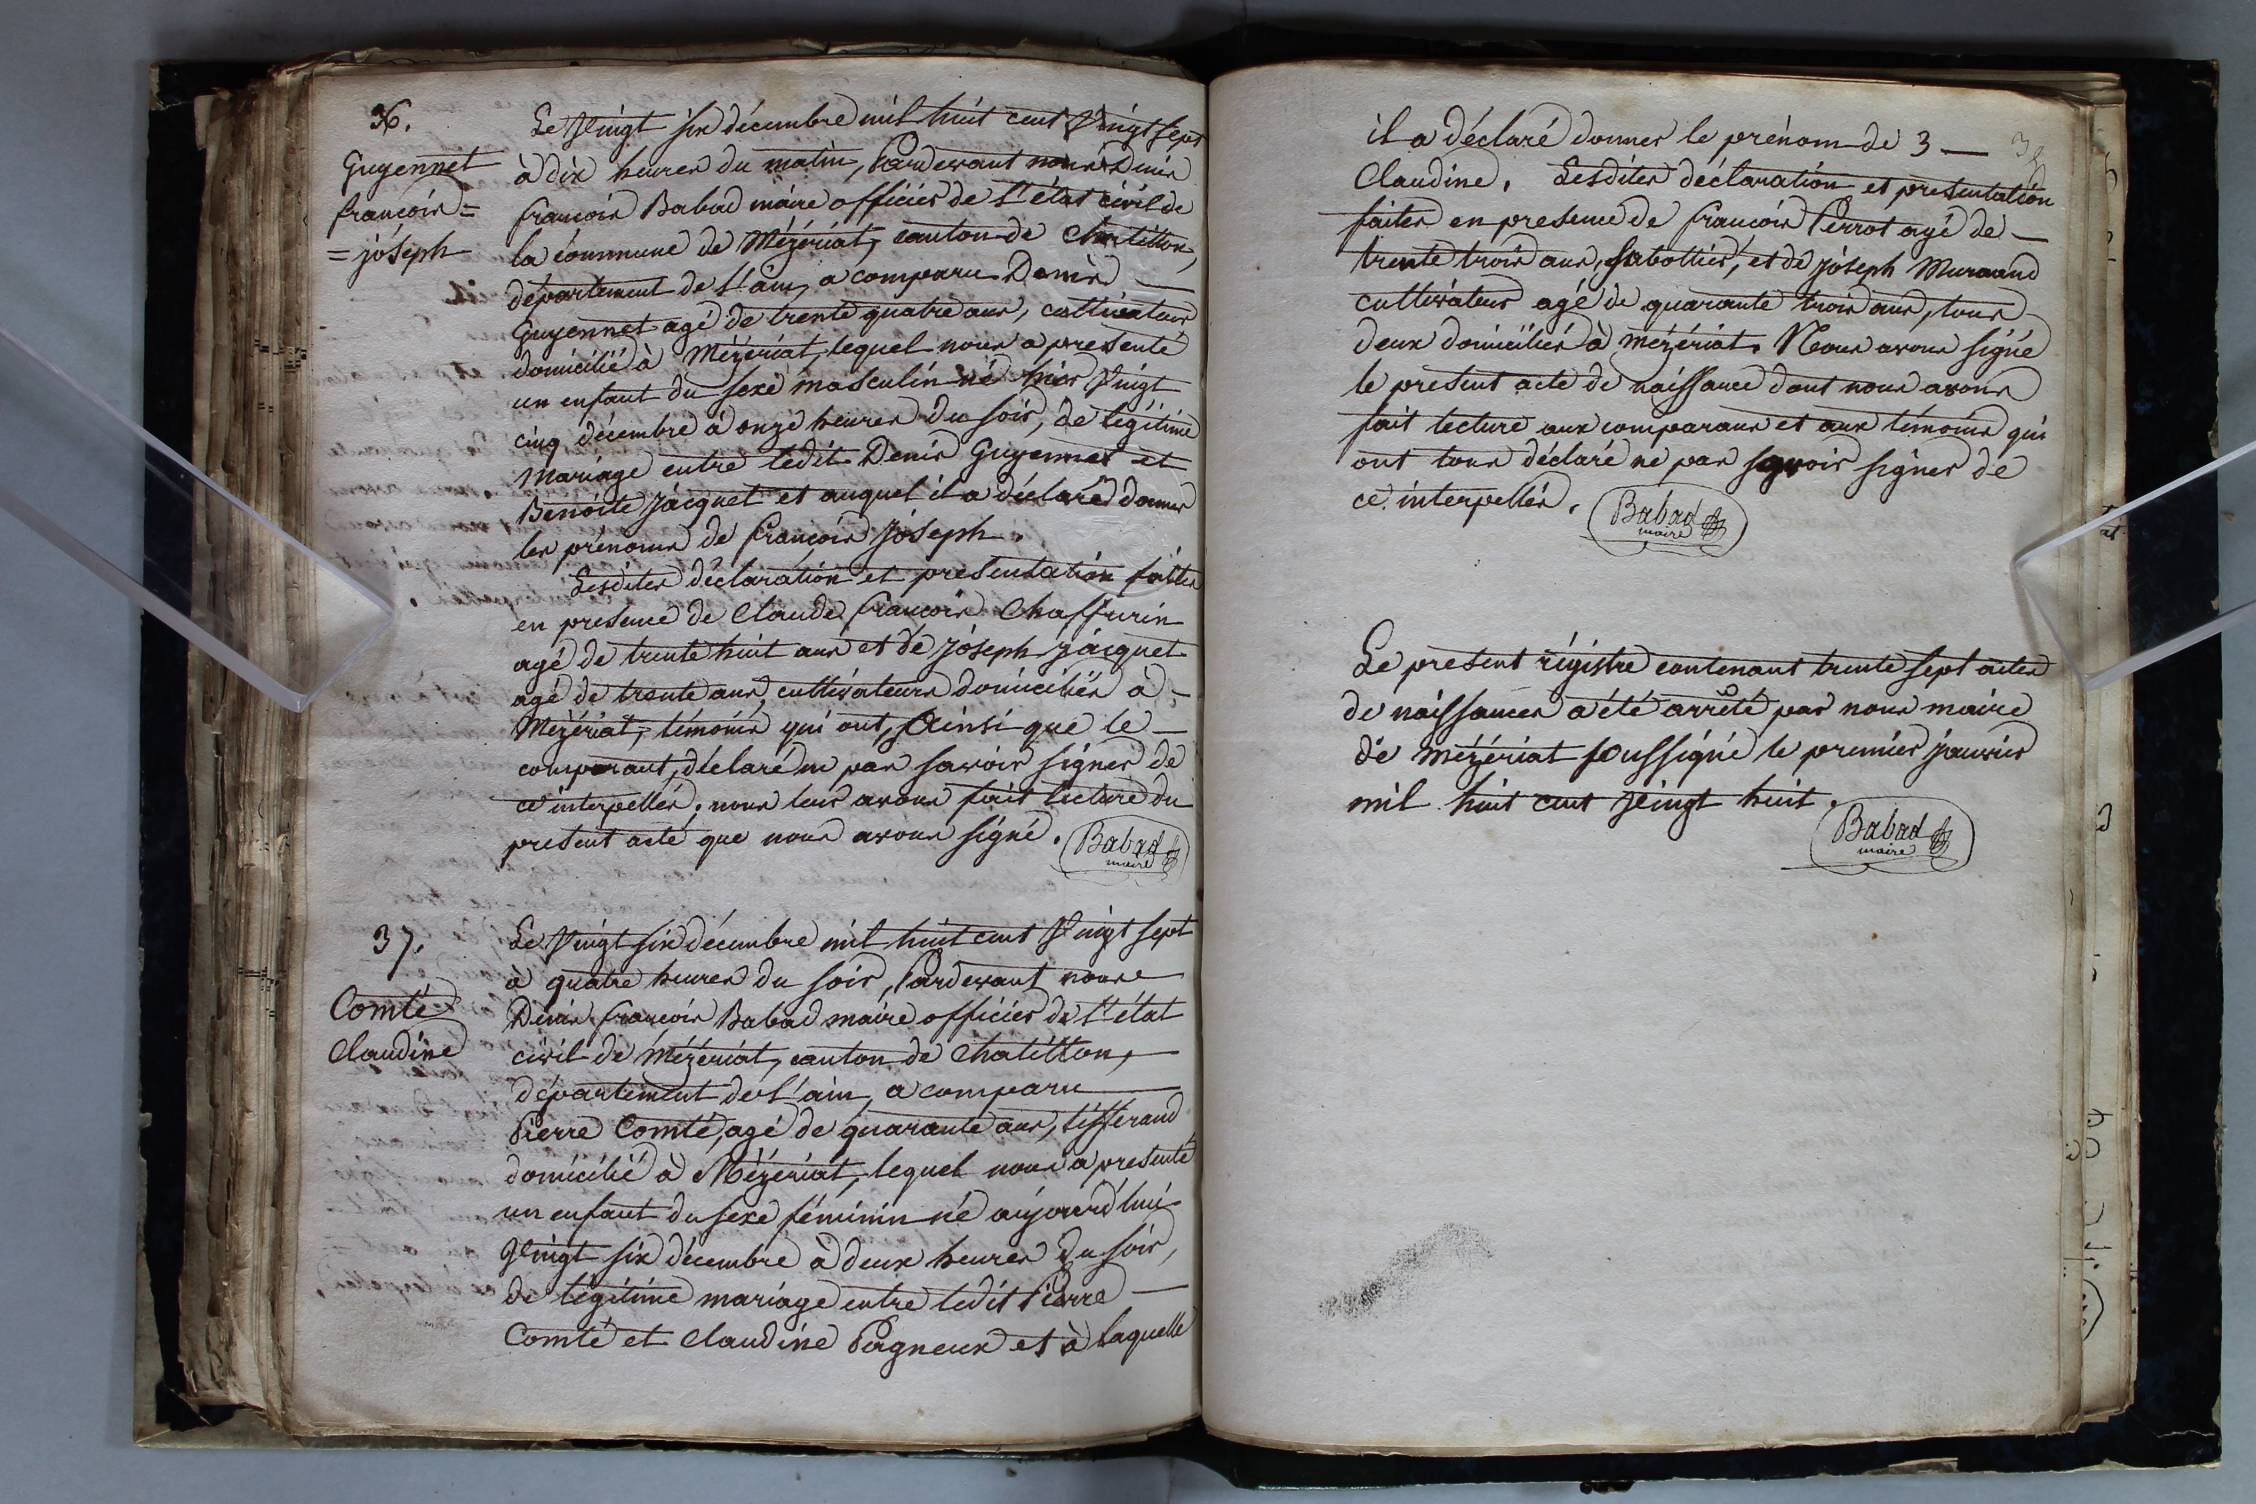 36.
Guyennet
françois =
= jóseph
Le Vingt six décembre mil huit cent Vingt sept
à dix heures du matin, Pardevant nous Denis
françois Babad maire officier de l'état civil de
la commune de Mézériat, canton de Chatillon,
département de l'ain, a comparu Denis —
Guyennet agé de trente quatre ans, cultivateur
domicilié à Mézériat, lequel nous a presenté
un enfant du sexe masculin né hier Vingt
cinq décembre à onze heures du soir, de légitime
mariage entre ledit Denis Guyennet et
Benoite Jacquet et auquel il a déclaré donner
les prénoms de françois Jóseph.
Lesdites déclaration et presentation faites
en presence de Claude françois Chaffurin
agé de trente huit ans et de jóseph Jacquet
agé de trente ans, cultivateurs domiciliés à —
Mézériat, témoins qui ont, Ainsi que le —
comparant, déclaré ne pas savoir signer de
ce interpellés, nous leur avons fait lecture du
present acte que nous avons signé. Babad
maire
37.
Comté
Claudine
Le Vingt six décembre mil huit cent Vingt sept
à quatre heures du soir, Pardevant nous
Denis françois Babad maire officier de l'état
civil de Mézériat, canton de Chatillon, —
département de l'ain, a comparu —
Pierre Comté, agé de quarante ans, tisserand
domicilié à Mézériat, lequel nous a presenté
un enfant du sexe féminin né aujourd'hui
Vingt six décembre à deux heures du soir,
de légitime mariage entre ledit Pierre —
Comté et Claudine Pagneux et à laquelle
il a déclaré donner le prénom de 3 —
Claudine. Lesdites déclaration et presentation
faites en presence de françois Perrot agé de —
trente trois ans, sabottier, et de jóseph
cultivateur agé de quarante trois ans, tous
deux domiciliés à mézériat. Nous avons signé
le present acte de naissance dont nous avons
fait lecture aux comparans et aux témoins qui
ont tous déclaré ne pas savoir signer de
ce interpellés. Babad
maire
Le present régistre contenant trente sept actes
de naissances a été arrêté par nous maire
de mézériat soussigné le premier janvier
mil huit cent Vingt huit.
Babad
maire